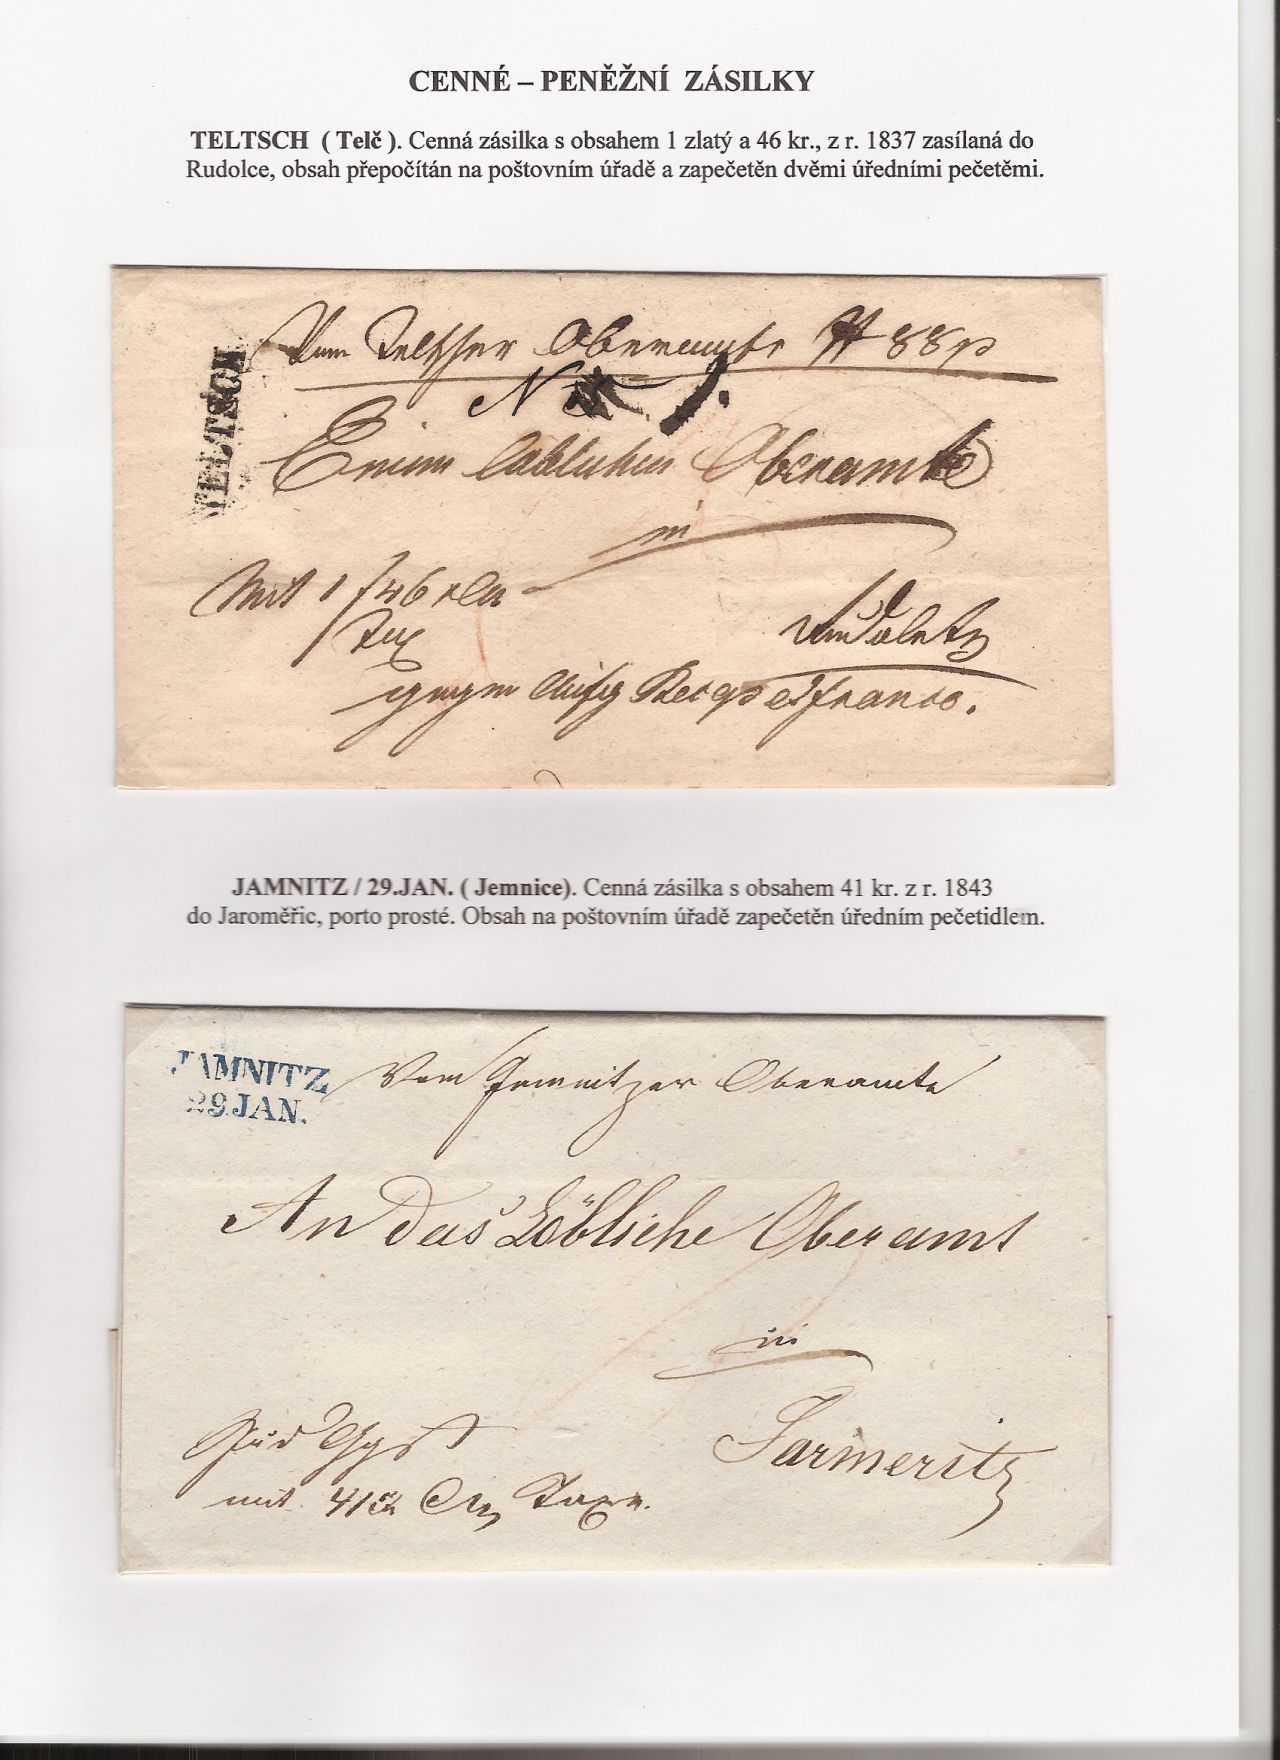 CENNÉ – PENĚŽNÍ ZÁSILKY
TELTSCH ( Telč ). Cenná zásilka s obsahem 1 zlatý a 46 kr., z r. 1837 zasílaná do
Rudolce, obsah přepočítán na poštovním úřadě a zapečetěn dvěmi úředními pečetěmi.
TELTSCH
Vom Teltscher Oberamte
Einem löblichen Oberamte
in
Mit 1 f 46 x
Tax
Rudoletz
gegen Recep et franco.
JAMNITZ / 29.JAN. ( Jemnice). Cenná zásilka s obsahem 41 kr. z r. 1843
do Jaroměřic, porto prosté. Obsah na poštovním úřadě zapečetěn úředním pečetidlem.
JAMNITZ
29.JAN.
Vom Jamnitzer Oberamte
An das Löbliche Oberamt
in
Jarmeritz
mit 41 x CM Taxen.